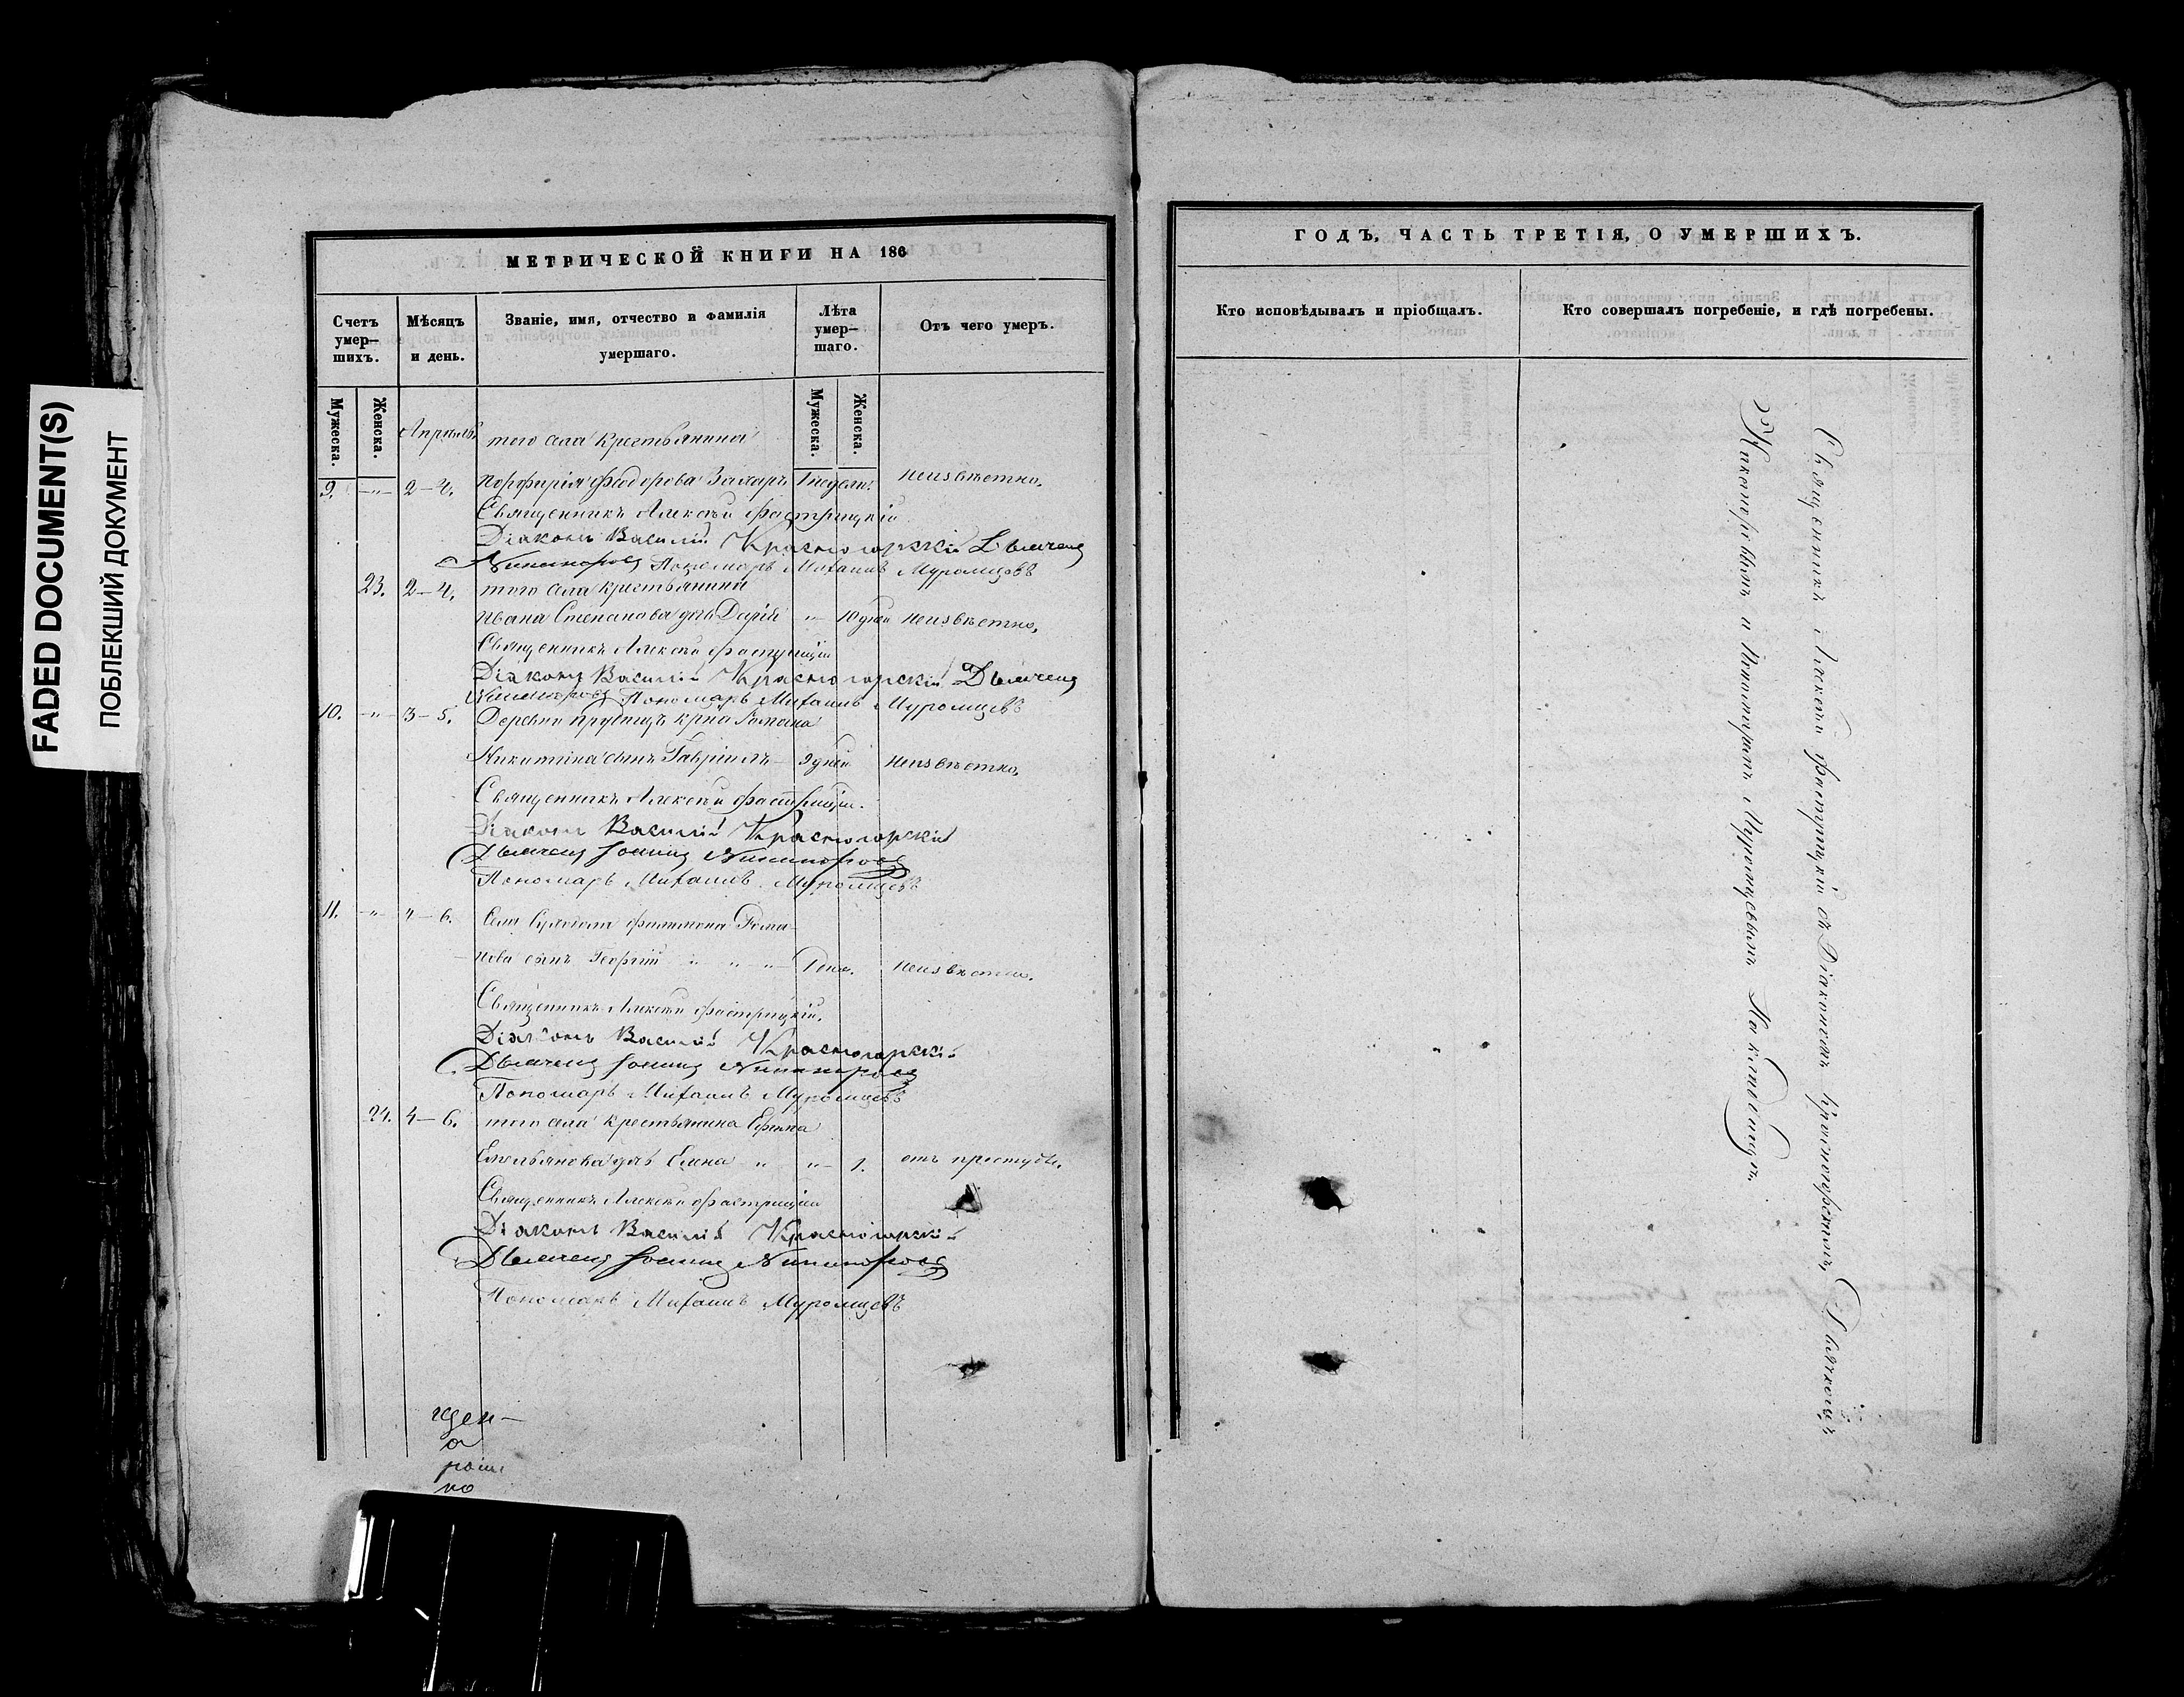 FADED DOCUMENT(S)
ПОБЛЕКШИЙ ДОКУМЕНТ
МЕТРИЧЕСКОЙ КНИГИ НА 186
Счетъ умер—шихъ.
Мѣсяцъ и день.
Званіе, имя, отчество и фамилія умершаго.
Лѣта умер—шаго.
Отъ чего умеръ.
Мужеска.
Женска.
Мужеска.
Женска.
Апрѣль
того села крестьянина
9. —"— 2—4. Порфирія Федорова Захаръ 1 недели. неизвѣстно.
Священникъ Алексѣй Фастрицкій
Діаконъ Василій Красногорскій Дьячекъ
Никифоровъ Пономарь Михаилъ Муромцевъ
23. 2—4. того села крестьянина
Ивана Степанова дчь Дарія " 10 дней неизвѣстно.
Священникъ Алексѣй Фастрицкій
Діаконъ Василій Красногорскій Дьячекъ
Никифоровъ Пономарь Михаилъ Муромцевъ
10. —"— 3—5. Деревни крна Романа
Никитина сынъ Гавріилъ 9 дней неизвѣстно.
Священникъ Алексѣй Фастрицкій.
Діаконъ Василій Красногорскій
Дьячекъ Іоаннъ Никифоровъ
Пономарь Михаилъ Муромцевъ
11. —"— 4—6. Села Филимона Рома—
нова сынъ Георгій " " " 1 день. неизвѣстно.
Священникъ Алексѣй Фастрицкій.
Діаконъ Василій Красногорскій
Дьячекъ Іоаннъ Никифоровъ
Пономарь Михаилъ Муромцевъ
24. 4—6. того села крестьянина Ефима
Емельянова дчь Елена " " 1. отъ простуды.
Священникъ Алексѣй Фастрицкій
Діаконъ Василій Красногорскій
Дьячекъ Іоаннъ Никифоровъ
Пономарь Михаилъ Муромцевъ
ГОДЪ, ЧАСТЬ ТРЕТІЯ, О УМЕРШИХЪ.
Кто исповѣдывалъ и пріобщалъ.
Кто совершалъ погребеніе, и гдѣ погребены.
Священникъ Алексѣй Фастрицкій съ Діакономъ Красногорскимъ, Дьячкомъ
Никифоровымъ и Пономаремъ Муромцевымъ На кладбищѣ.